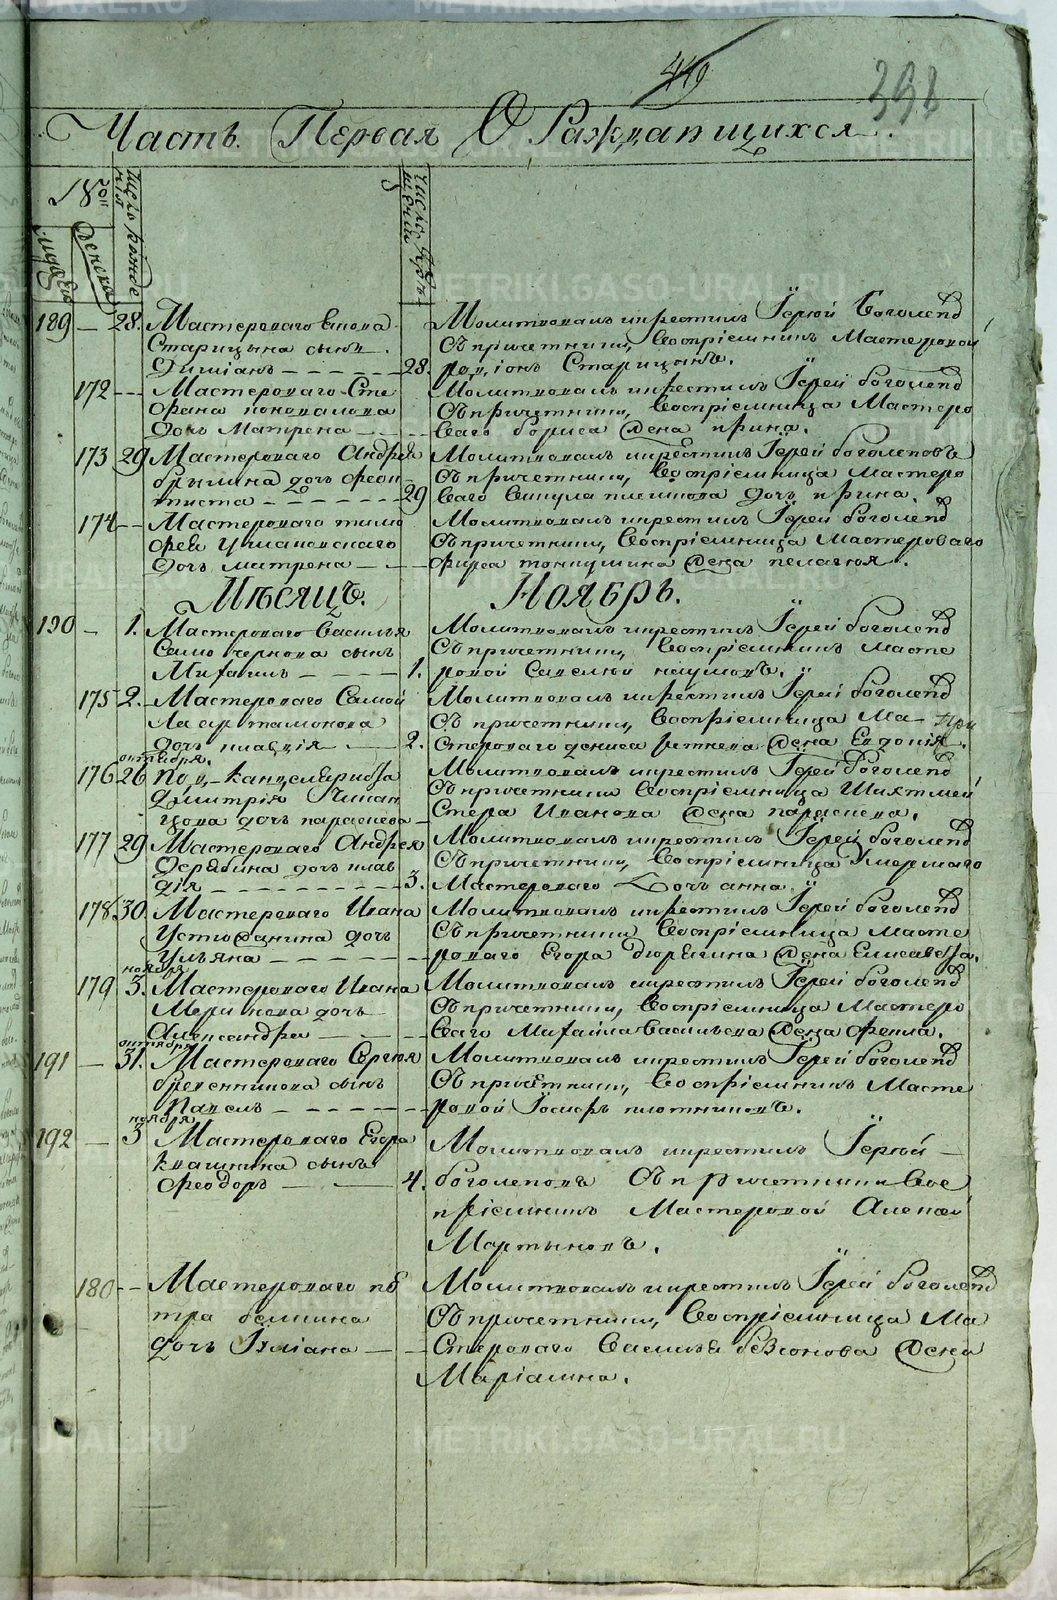 449
398
Часть Первая О Раждающихся.
№
число рожденія
число крещенія
мужеска
женска
189 — 28. Мастероваго Іакова
Старицына сынъ
Диміанъ — 28.
Молитвовалъ и крестилъ Іерей Боголепо
Съ причетники, Воспріемникъ Мастеровой
Родіонъ Старицынъ.
172 — Мастероваго Сте
фана Коновалова
дочь Матрена —
Молитвовалъ и крестилъ Іерей боголепо
Съ причетники, Воспріемница Мастеро
ваго бориса жена Ирина.
173 29 Мастероваго Андрея
дочь Феок
тиста — 29
Молитвовалъ и крестилъ Іерей боголеповъ
Съ причетники, Воспріемница Мастеро
ваго дочь Ирина.
174 — Мастероваго тимо
фея
дочь матрена —
Молитвовалъ и крестилъ Іерей боголепо
Съ причетники, Воспріемница Мастероваго
жена пелагея.
Мѣсяцъ. Ноябрь.
190 — 1. Мастероваго Василья
Самочернова сынъ
Михаилъ — 1.
Молитвовалъ и крестилъ Іерей боголепо
Съ причетники, Воспріемникъ масте
ровой Савелей наумовъ.
175 2. Мастероваго Самой
ла артамонова
дочь клавдія — 2.
Молитвовалъ и крестилъ Іерей боголепо
Съ причетники, Воспріемница Ма
стероваго дениса жена Евдокія.
октября.
176 26 Под-Канцеляриста
Димитрія
дочь параскева —
Молитвовалъ и крестилъ Іерей боголепо
Съ причетники Воспріемница Шихтмей
стера Иванова жена параскева.
177 29 Мастероваго Андрея
Дерябина дочь клав
дія — 3.
Молитвовалъ и крестилъ Іерей боголепо
Съ причетники, Воспріемница Умершаго
Мастероваго Дочь анна.
178. 30. Мастероваго Ивана
Устюжанина дочь
Ульяна —
Молитвовалъ и крестилъ Іерей боголепо
Съ причетники, Воспріемница Масте
роваго Егора жена Елисавета.
ноября
179 3. Мастероваго Ивана
дочь
Александра —
Молитвовалъ и крестилъ Іерей боголепо
Съ причетники, Воспріемница Мастеро
ваго Михайла Васильева жена Фекла.
октября
191 — 31. Мастероваго Сергея
бревенникова сынъ
Павелъ —
Молитвовалъ и крестилъ Іерей боголепо
Съ причетники, Воспріемникъ Масте
ровой Іосифъ плотниковъ.
ноября
192 — 3 Мастероваго Егора
Квашнина сынъ
Феодоръ — 4.
Молитвовалъ и крестилъ Іерей —
боголеповъ Съ причетники Вос
пріемникъ Мастеровой Алексей
Мартыновъ.
180 — Мастероваго пе
тра
дочь Іуліана —
Молитвовалъ и крестилъ Іерей боголепо
Съ причетники, Воспріемница Ма
стероваго Василья безсонова жена
Маріамна.
METRIKI.GASO-URAL.RU